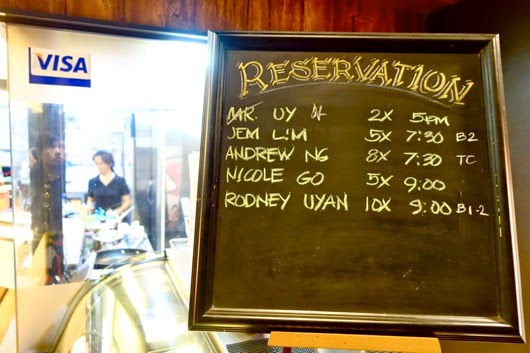 VISA
RESERVATION
MR. UY 2X 5PM
JEM LIM 5X 7:30 B2
ANDREW NG 8X 7:30 TC
NICOLE GO 5X 9:00
RODNEY UYAN 10X 9:00 B1-2